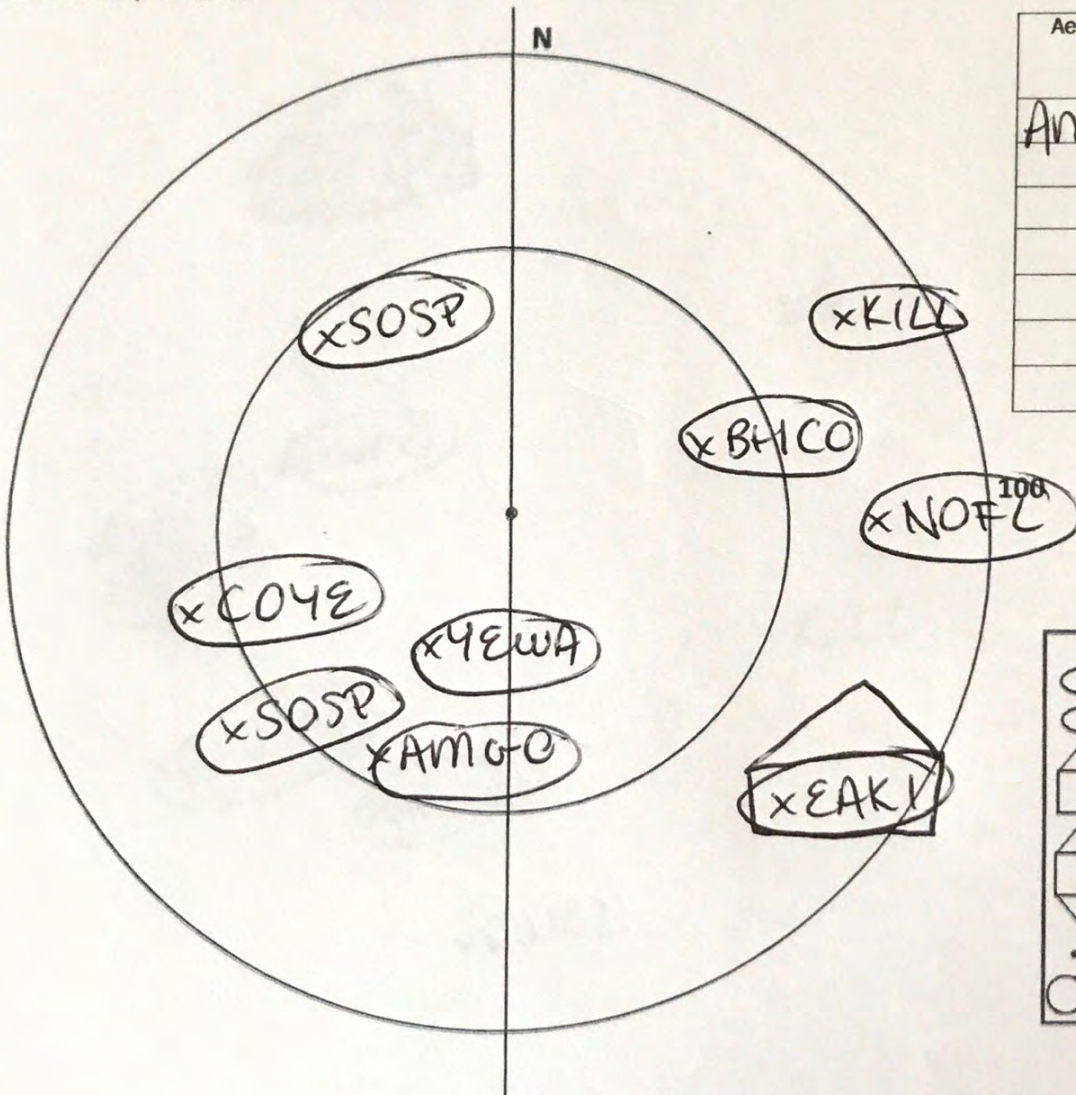 N
Ae
An
xSOSP
xKILL
xBHCO
100
xNOFL
xCOYE
xYEWA
xSOSP
xAMGO
xEAKI